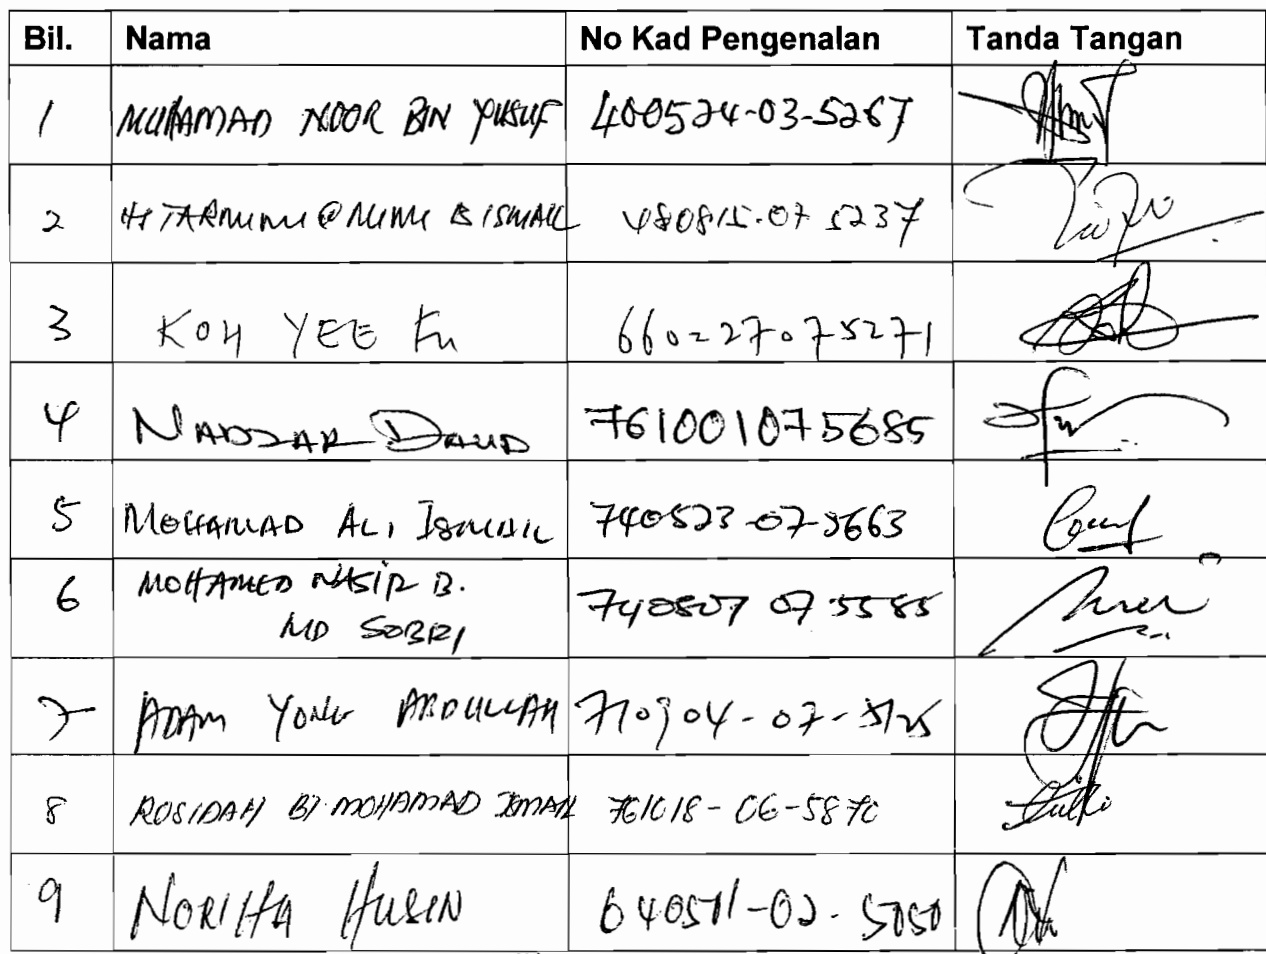 Bil. Nama No Kad Pengenalan Tanda Tangan
1 MUHAMAD NOOR BIN YUSUF 400524-03-5267
2 B ISMAIL 480815-07 5237
3 KOH YEE FU 660227075271
4 NADZAR DAUD 761001075685
5 MOHAMAD ALI ISMAIL 740523-07-5663
6 MOHAMED NASIR B.
MD SOBRI 740807 07 5585
7 ADAM YONG ABDULLAH 710904-07-5125
8 ROSIDAH BT MOHAMAD ISMAIL 761018-06-5870
9 NORIHA HUSIN 640511-02-5050